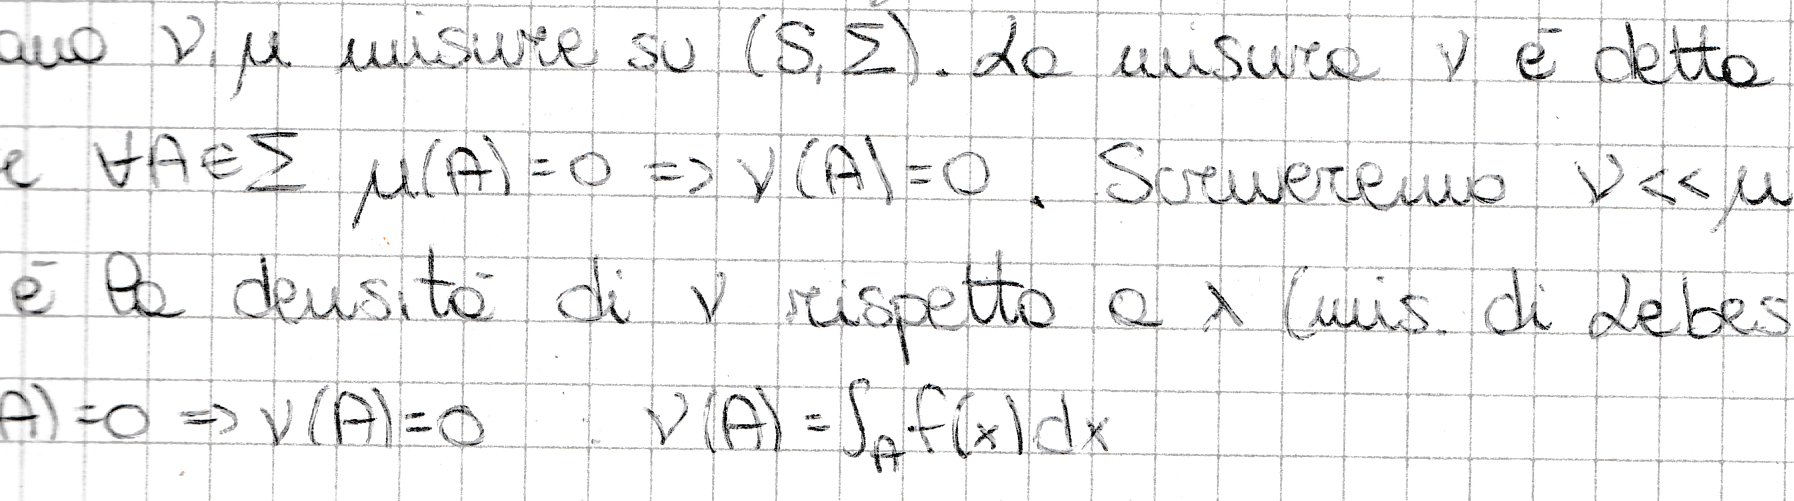 ano ν, μ misure su (S, Σ). La misura ν è detta
e ∀A∈Σ μ(A)=0 => ν(A)=0. Scriveremo ν<<μ
è la densità di ν rispetto a λ (mis. di Lebes
A)=0 => ν(A)=0 ν(A)=∫_A f(x)dx